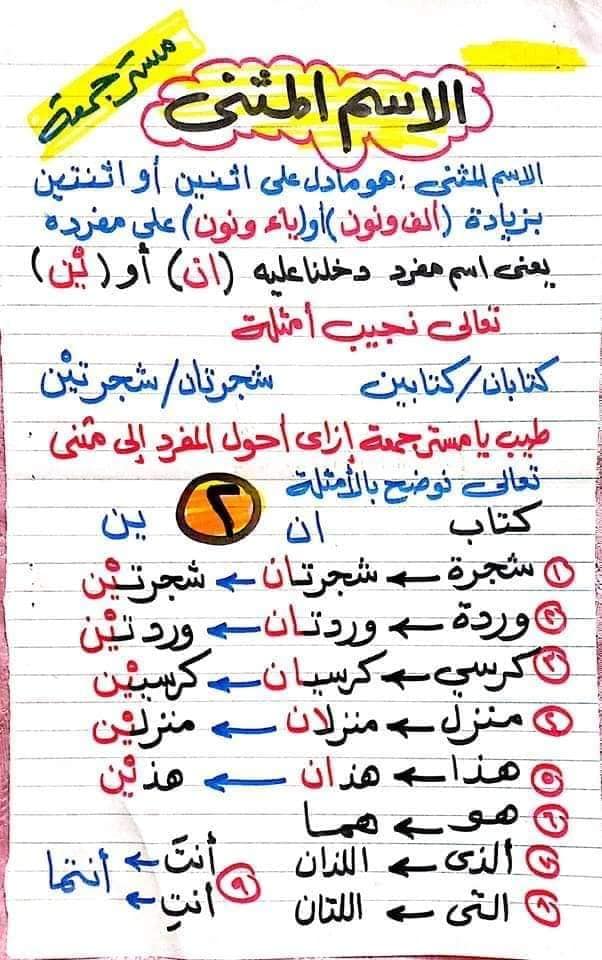 مستر جمعة
الاسم المثنى
الاسم المثنى : هو ما دل على اثنين أو اثنتين
بزيادة (ألف ونون) أو (ياء ونون) على مفرده
يعنى اسم مفرد دخلنا عليه (ان) أو (يْن)
تعالى نجيب أمثلة
كتابان/كتابين شجرتان/شجرتيْن
طيب يا مستر جمعة إزاى أحول المفرد إلى مثنى
تعالى نوضح بالأمثلة
كتاب ان ٢ ين
١ شجرة ← شجرتان ← شجرتيْن
٢ وردة ← وردتان ← وردتيْن
٣ كرسي ← كرسيان ← كرسييْن
٤ منزل ← منزلان ← منزليْن
٥ هذا ← هذان ← هذيْن
٦ هو ← هما
٧ ألذى ← اللذان
٨ التى ← اللتان
٩ أنتَ ← أنتِ ← أنتما